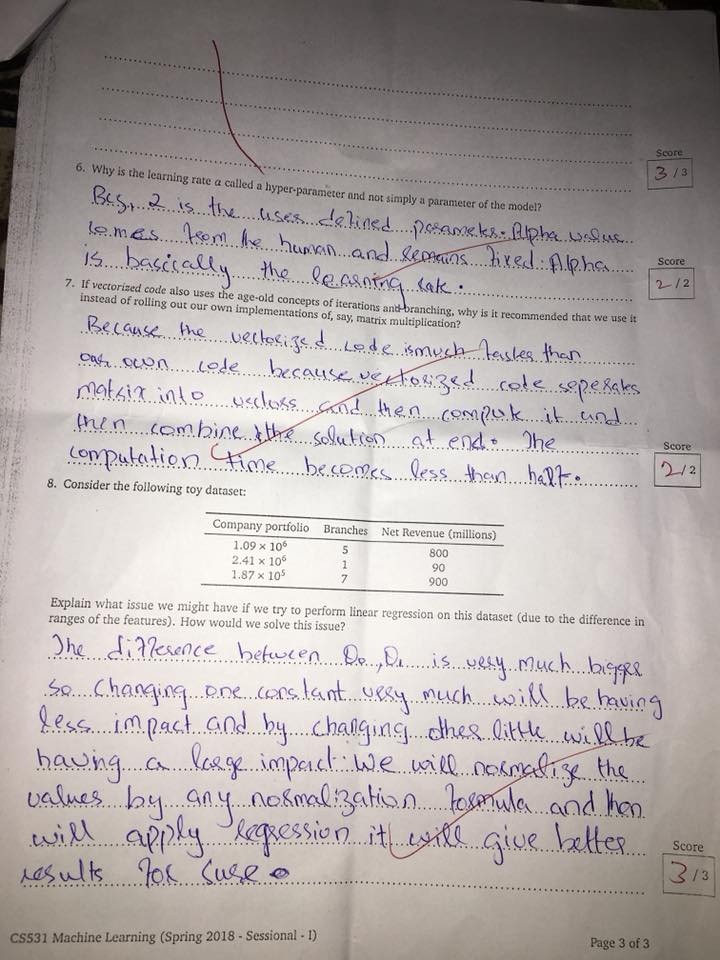 Score
3 / 3
6. Why is the learning rate α called a hyper-parameter and not simply a parameter of the model?
Bcz, α is the user defined parameter. Alpha value
comes from the human and remains fixed. Alpha
is bascially the learning rate.
Score
2 / 2
7. If vectorized code also uses the age-old concepts of iterations and branching, why is it recommended that we use it
instead of rolling out our own implementations of, say, matrix multiplication?
Because the vectorized code is much faster than
our own code because vectorized code seperates
matrix into vectors and then compute it and
then combine the solution at end. The
computation time becomes less than half.
Score
2 / 2
8. Consider the following toy dataset:
Company portfolio Branches Net Revenue (millions)
1.09 × 10⁶ 5 800
2.41 × 10⁶ 1 90
1.87 × 10⁵ 7 900
Explain what issue we might have if we try to perform linear regression on this dataset (due to the difference in
ranges of the features). How would we solve this issue?
The difference between θ₀, θ₁ is very much bigger
so changing one constant very much will be having
less impact and by changing other little will be
having a large impact. We will normalize the
values by any normalization formula and then
will apply regression it will give better
results for sure.
Score
3 / 3
CS531 Machine Learning (Spring 2018 - Sessional - I)
Page 3 of 3